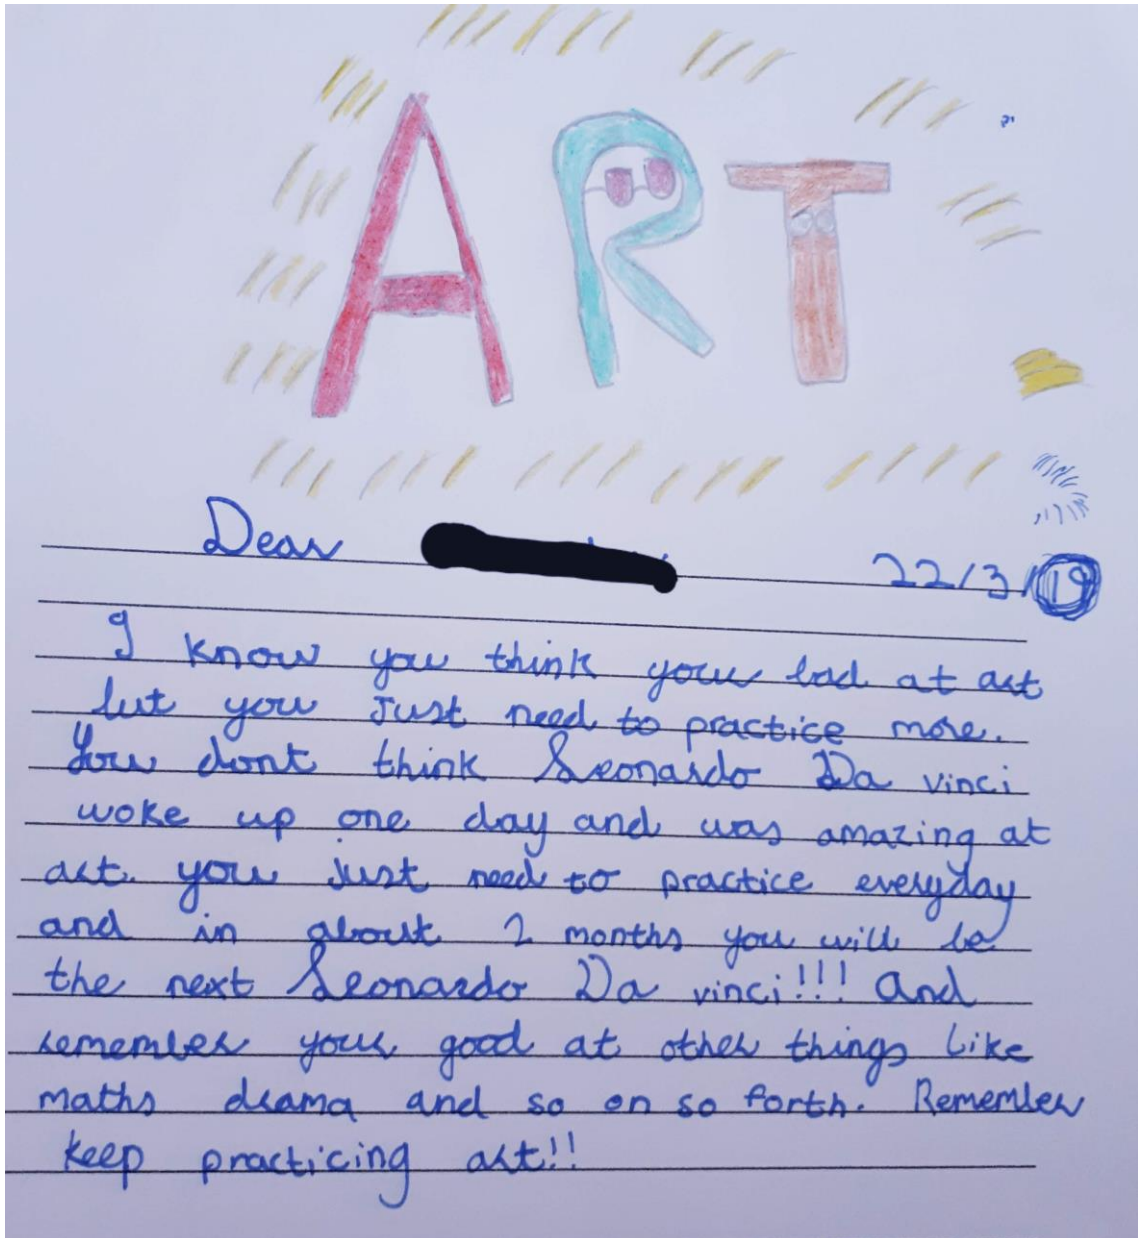 ART
Dear
22/3/19
I know you think your bad at art
but you just need to practice more.
You dont think Leonardo Da vinci
woke up one day and was amazing at
art. you just need to practice everyday
and in about 2 months you will be
the next Leonardo Da vinci!!! and
remember your good at other things like
maths drama and so on so forth. Remember
keep practicing art!!